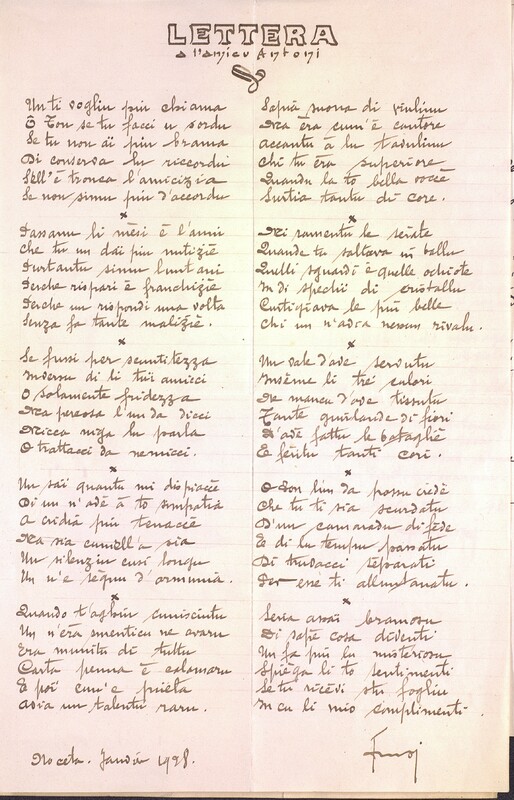 LETTERA
a l'amicu Antoni
Un ti vogliu piu chiama
O Ton se tu facci u sordu
Se tu non ai piu brama
Di conserva lu riccordu
Sell'è tronca l'amicizia
Se non simu piu d'accordu
Passanu li mesi è l'anni
che tu un dai piu nutizie
Purtantu simu luntani
Perche rispari è franchizie
Perche un rispondi una volta
Senza fa tante malizie.
Se fussi per scuntitezza
Inversu di li tui amicci
O solamente fridezza
Ma percosa l'un da dicci
Micca niga la parla
O trattacci da nemicci.
Un sai quantu mi dispiacce
Di un n'ade à to simpatia
A cridia piu tenacce
Ma sia cumell'a sia
Un silenziu cusi longu
Un n'e segnu d'armunia.
Quando t'aghiu cunisciutu
Un n'era smenticu ne avaru
Era munitu di tuttu
Carta penna è calamaru
E poi cum'e pueta
Avia un talentu raru.
Sapia suona di viulinu
Ma era cum'è cantore
accantu à lu tavulinu
chi tu era superiore
Quandu la to bella vocce
Surtia tantu di core.
Mi ramentu le serate
Quande tu saltava in ballu
Quelli sguardi è quelle ochiate
In di spechii di cristallu
Curtigiava le piu belle
Chi un n'avia nessun rivalu.
Un vale d'ave servutu
Insème li trè culori
Ne manca d'ave tissutu
Tante guirlande di fiori
D'avè fattu le bataglie
E feritu tanti cori.
O Don lun da possu crède
Che tu ti sia scurdatu
D'un camaradu di fède
E di lu tempu passatu
Di truvacci separati
Per esse ti alluntanatu.
Seria assai bramosu
Di sapè cosa diventi
Un fa piu lu misteriosu
Spiega li to sentimenti
Se tu ricèvi stu fogliu
In cu li mio complimenti.
Noceta. Janvià 1928.